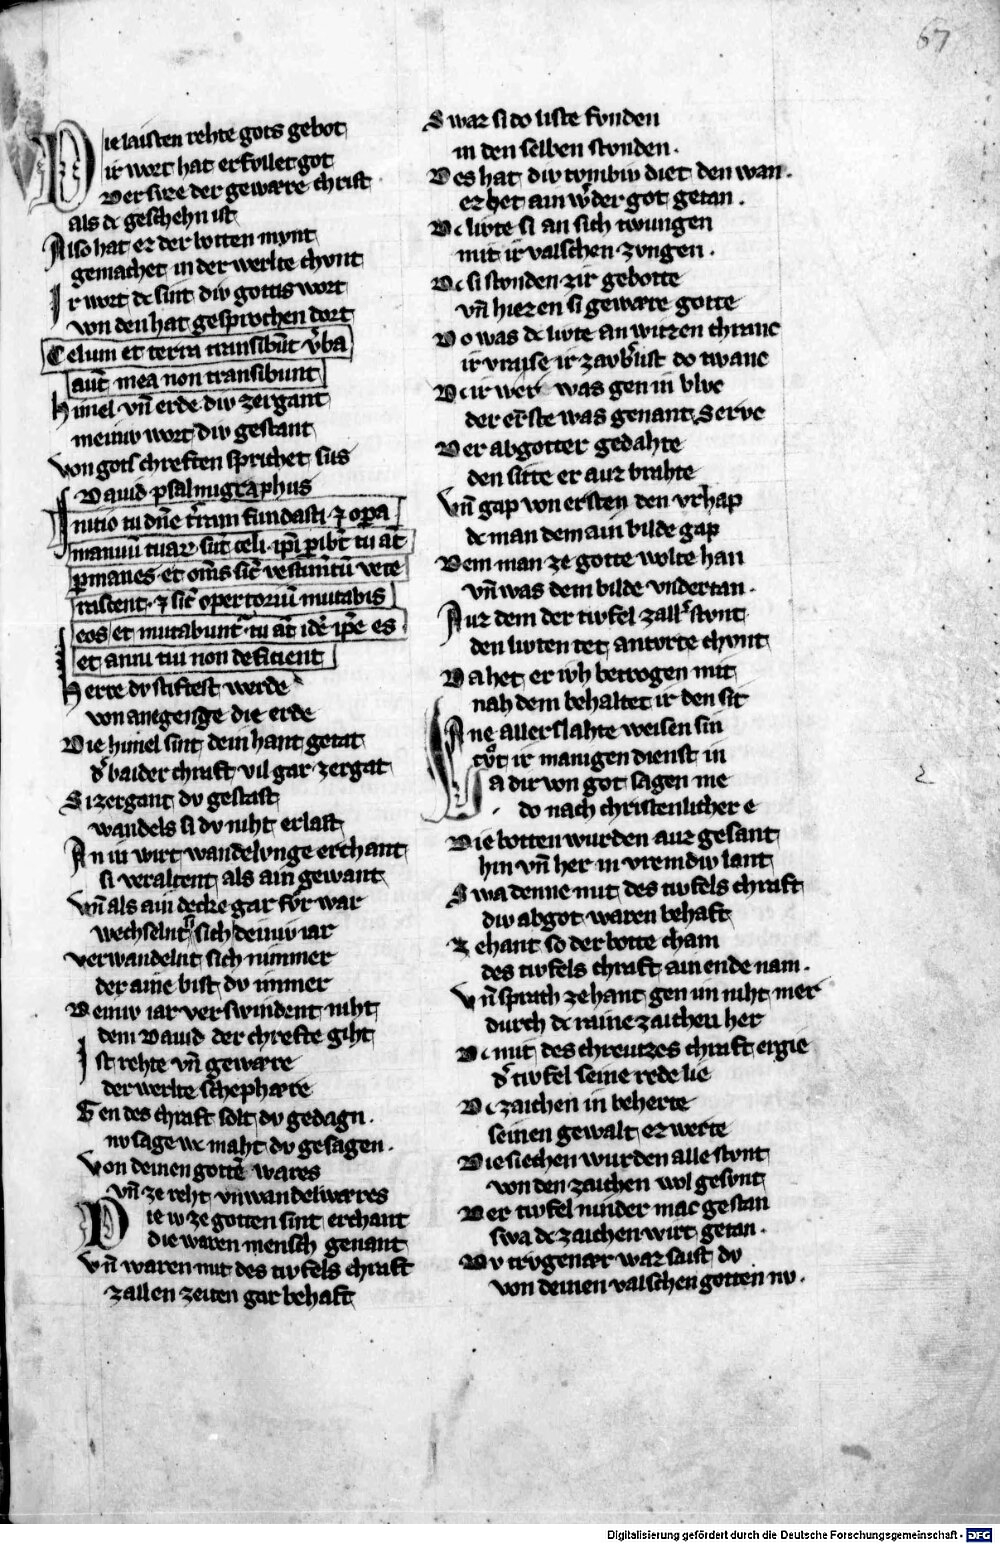 67
Die laisten rehte gots gebot
ir wort hat erfvllet got
Der svzze der gewære christ
als dc geschehn ist
Also hat er der botten mvnt
gemachet in der werlte chvnt
Ir wort dc sint div gottis wort
von den hat gesprochen dort
Celum et terra transibūt v̓ba
aut̄ mea non transibunt
Himel vn̄ erde div zergant
meiniv wort div gestant
Von gots chreften sprichet sus
Dauid psalmigraphus
Initio tu dn̄e t̓ram fundasti ⁊ oꝑa
manuū tuaꝝ sūt celi ip̄i ꝑibūt tu at̄
ꝑmanes et om̄s sic̄ vestimētū vete
rascent ⁊ sic̄ opertoriū mutabis
eos et mutabunt᷑ tu at̄ idē ip̄e es
et anni tui non deficient
Herre dv stiftest werde
von anegenge die erde
Die himel sint dein hant getat
d̓ baider chraft vil gar zergat
Si zergant dv gestast
wandels si dv niht erlast
An in wirt wandelvnge erchant
si veraltent als ain gewant
Vn̄ als ain decke gar fv̓r war
wechselnt sich deiniv iar
verwandelnt sich nimmer
der aine bist dv immer
Deiniv iar verswindent niht
dem Dauid der chrefte giht
Ist rehte vn̄ gewære
der werlte schephære
Gen des chraft solt dv gedagn.
nv sage wc maht dv gesagen.
Von deinen gottē wares
vn̄ ze reht vnwandelwæres
Die iv ze gotten sint erchant
die waren mensch genant
Vn̄ waren mit des tivfels chraft
zallen zeiten gar behaft
Swaz si do liste fvnden
in den selben stvnden.
Des hat div tvmbiv diet den wan.
ez het ain wͥder got getan.
Dc livte si an sich twungen
mit ir valschen zvngen.
Dc si stvnden zir gebotte
vn̄ hiezen si gewære gotte
Do was dc livte an witzen chranc
ir vraise ir zavb̓list do twanc
Dc ir were was gen in blvc
der er̄ste was genant Servc
Der abgotter gedahte
den sitte er auz brahte
Vn̄ gap von ersten den vrhap
dc man dem ain bilde gap
Dem man ze gotte wolte han
vn̄ was dem bilde vndertan.
Auz dem der tivfel zall̓ stvnt
den livten tet antvrte chvnt
Da het er ivh betrogen mit
nah dem behaltet ir den sit
Ane aller slahte weisen sin
tv̊t ir manigen dienst in
La dir von got sagen me
do nach christenlicher e
Die botten wurden auz gesant
hin vn̄ her in vremdiv lant
Swa denne mit des tivfels chraft
div abgot waren behaft
Zehant so der botte cham
des tivfels chraft ain ende nam.
Vn̄ sprach zehant gen im niht mer
durch dc raine zaichen her
Dc mit des chreutzes chraft ergie
d̓ tivfel seine rede lie
Dc zaichen in beherte
seinen gewalt ez werte
Die siechen wurden alle stvnt
von den zaichen wol gesvnt
Der tivfel ninder mac gestan
swa dc zaichen wirt getan.
Dv trvgenær waz saist dv
von deinen valschen gotten nv.
Digitalisierung gefördert durch die Deutsche Forschungsgemeinschaft - DFG